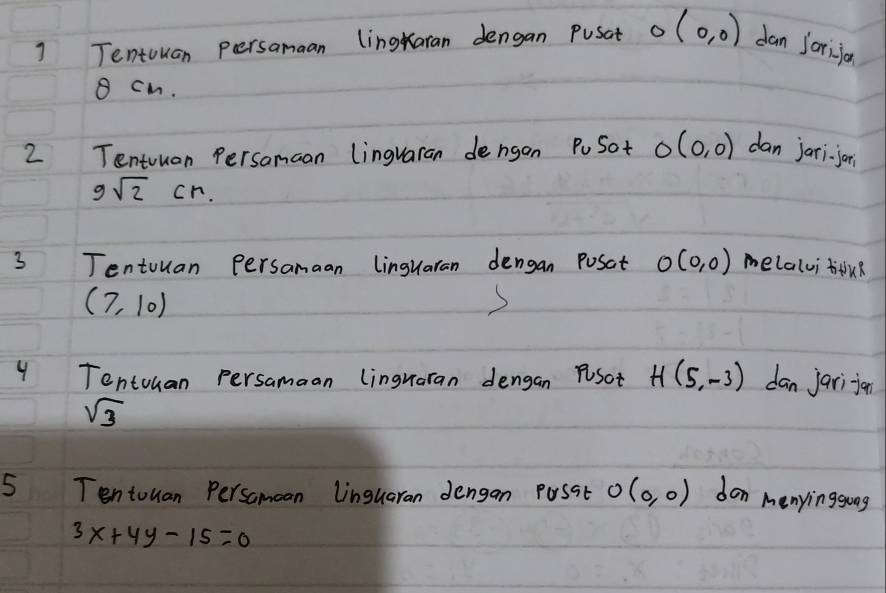 1 Tentukan persamaan lingkaran dengan Pusat O (0,0) dan jari-jari
8 cm.
2 Tentukan Persamaan lingkaran dengan Pusat O(0,0) dan jari-jari
9√2 cm.
3 Tentukan Persamaan lingkaran dengan Pusat O(0,0) melalui titik
(7, 10)
4 Tentukan Persamaan lingkaran dengan Pusat H(5,-3) dan jari-jari
√3
5 Tentukan Persamaan lingkaran dengan Pusat O(0,0) dan menyinggung
3x+4y-15=0